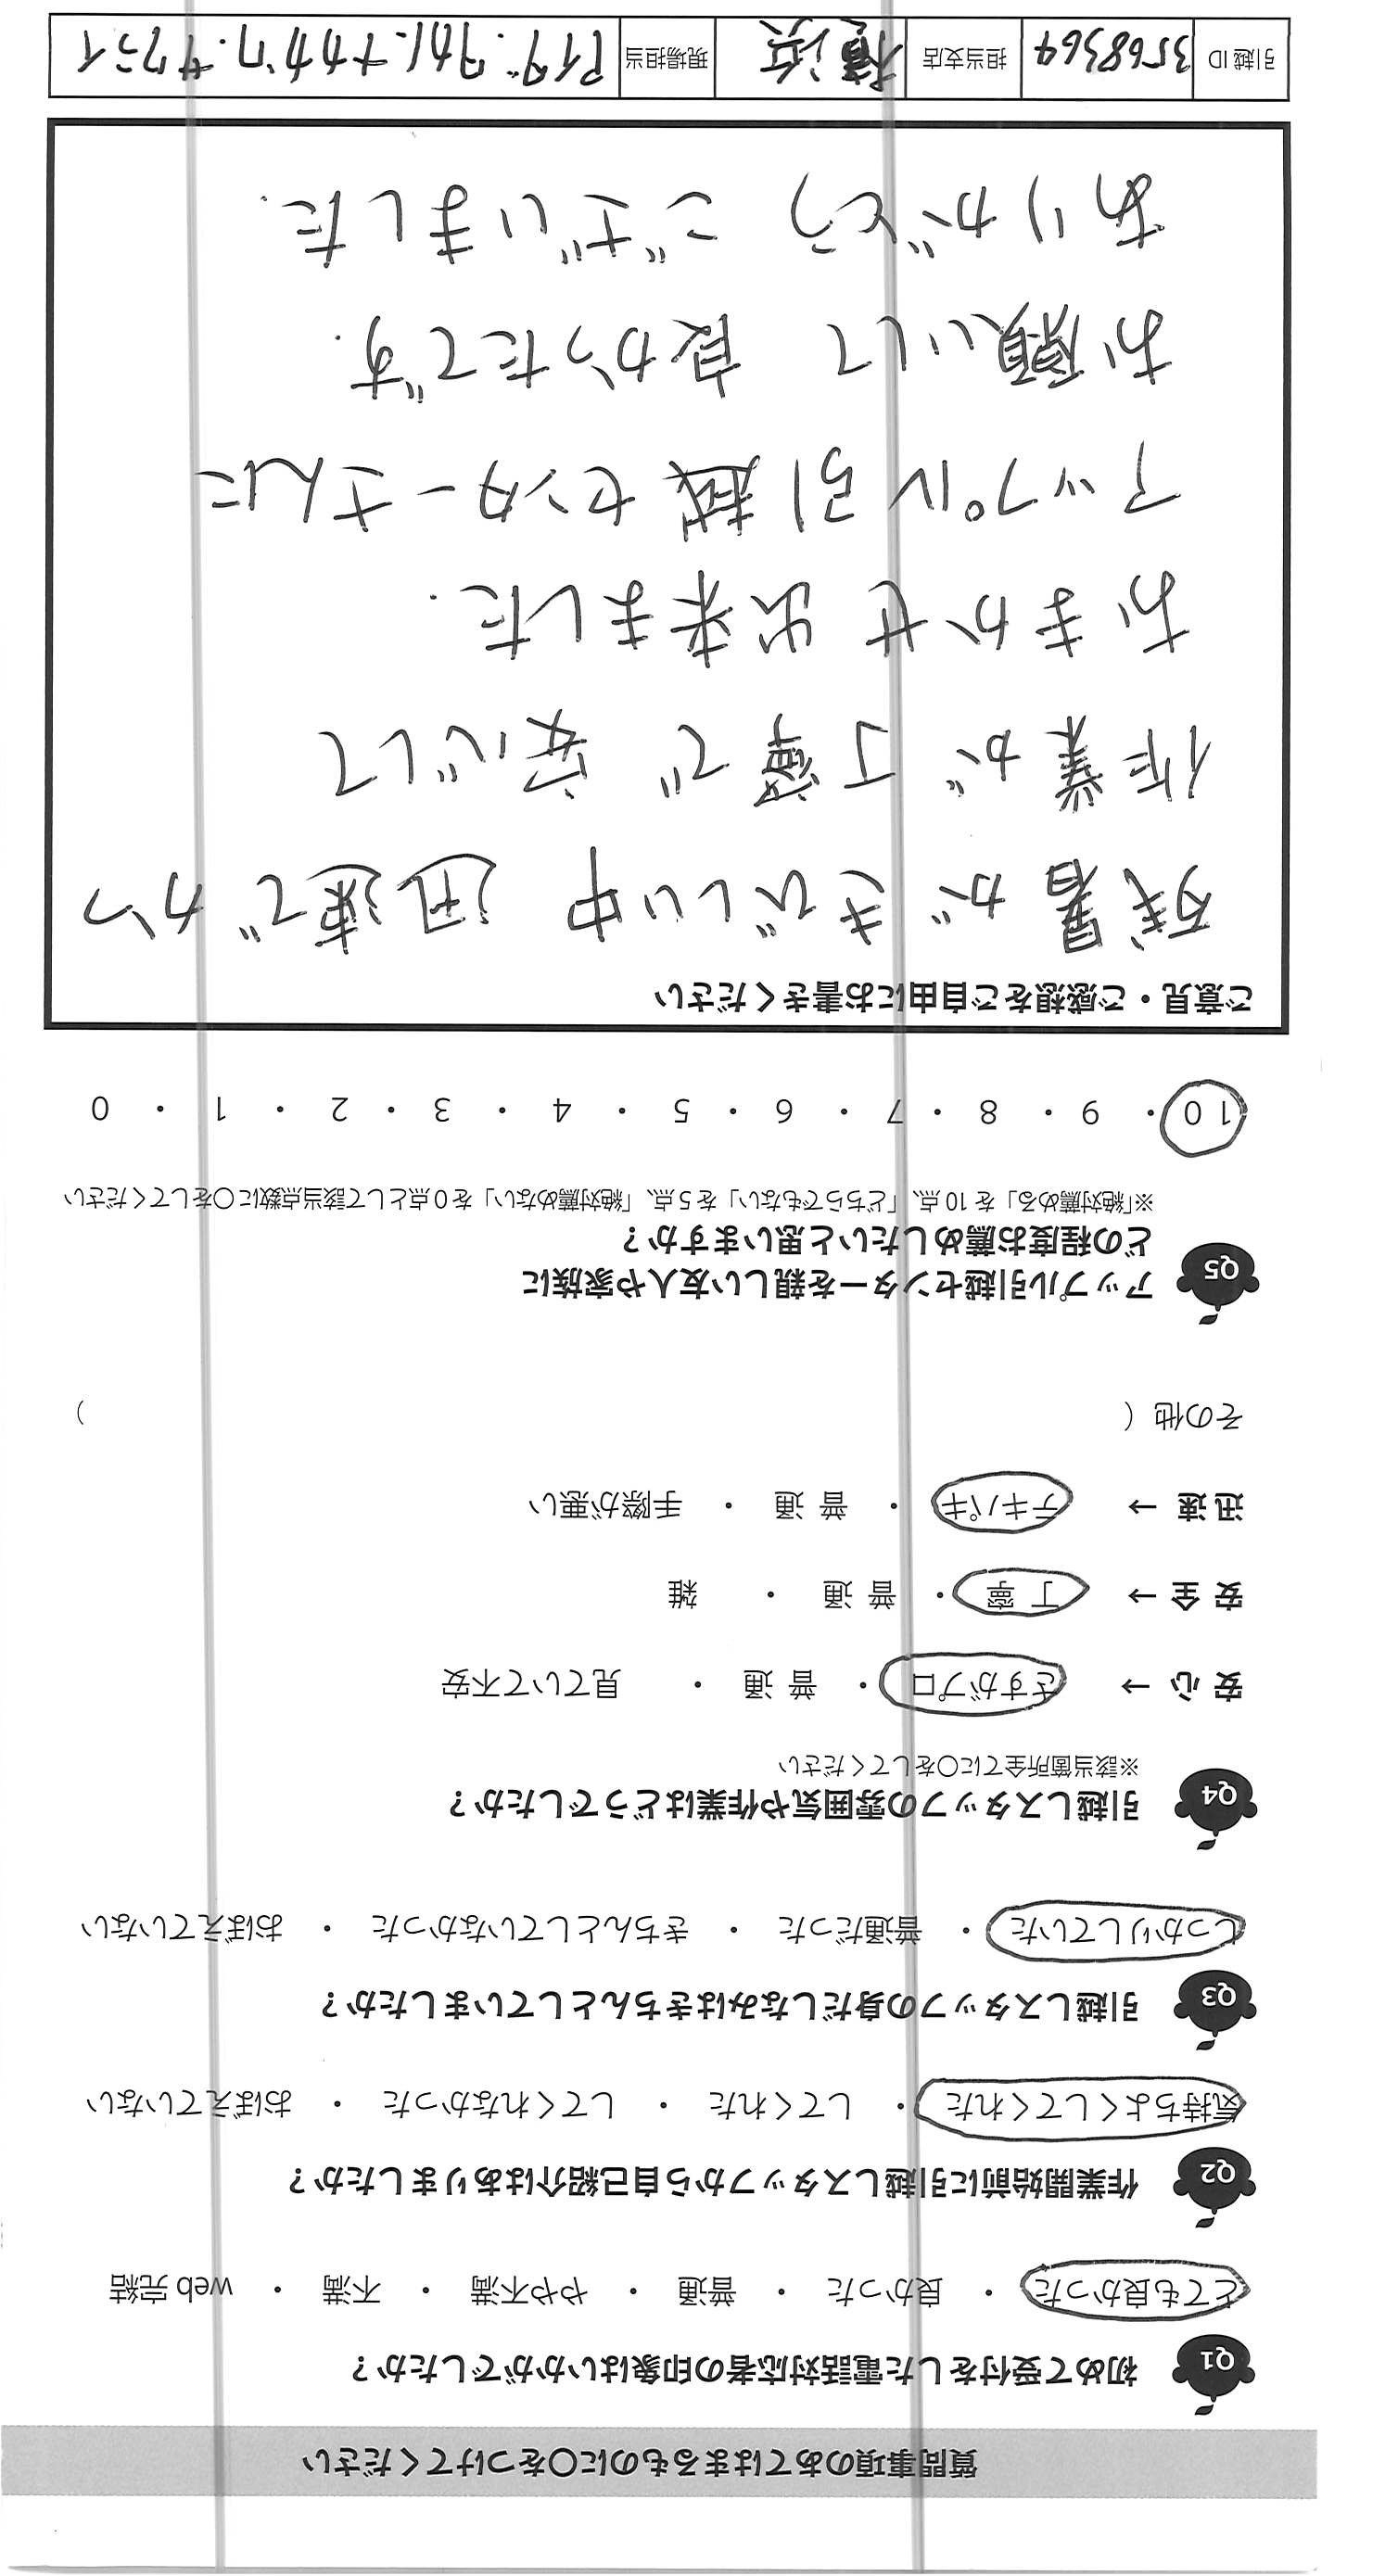 質問事項のあてはまるものに〇をつけてください
Q1 初めて受付をした電話対応者の印象はいかがでしたか？
とても良かった ・ 良かった ・ 普通 ・ やや不満 ・ 不満 ・ web 完結
Q2 作業開始前に引越しスタッフから自己紹介はありましたか？
気持ちよくしてくれた ・ してくれた ・ してくれなかった ・ おぼえていない
Q3 引越しスタッフの身だしなみはきちんとしていましたか？
しっかりしていた ・ 普通だった ・ きちんとしていなかった ・ おぼえていない
Q4 引越しスタッフの雰囲気や作業はどうでしたか？
※該当箇所全てに〇をしてください
安 心 → さすがプロ ・ 普 通 ・ 見ていて不安
安 全 → 丁 寧 ・ 普 通 ・ 雑
迅 速 → テキパキ ・ 普 通 ・ 手際が悪い
その他 （ ）
Q5 アップル引越センターを親しい友人や家族に
どの程度お薦めしたいと思いますか？
※「絶対薦める」を 10 点、「どちらでもない」を 5 点、「絶対薦めない」を 0 点として該当点数に〇をしてください
10 ・ 9 ・ 8 ・ 7 ・ 6 ・ 5 ・ 4 ・ 3 ・ 2 ・ 1 ・ 0
ご意見・ご感想をご自由にお書きください
残暑がきびしい中 迅速でかつ
作業が丁寧で 安心して
おまかせ出来ました.
アップル引越センターさんに
お願いして 良かったです.
ありがとう ございました.
引越 ID 3568364 担当支店 横浜 現場担当